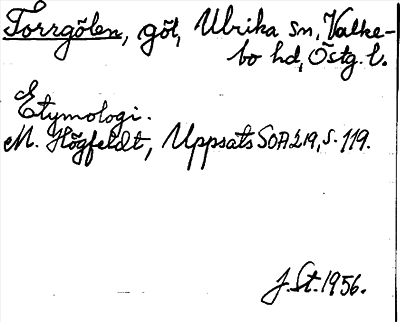 Torrgölen, göl, Ulrika sn, Valke-
bo hd, Östg. l.
Etymologi.
M. Högfeldt, Uppsats SOA 219, s. 119.
J. St. 1956.